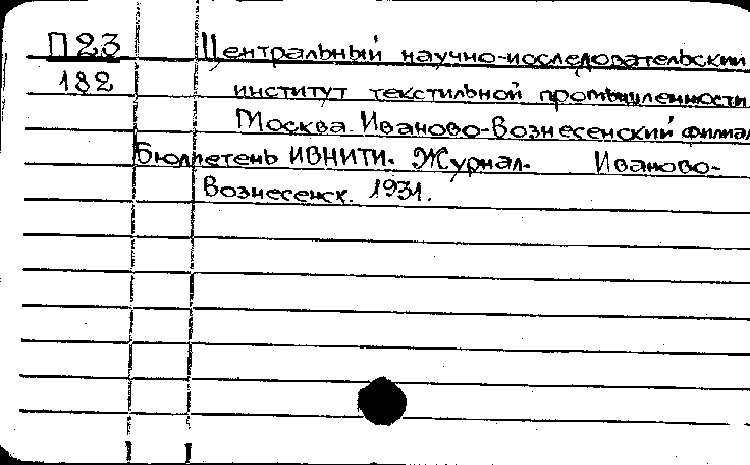 П23 Центральный научно-исследовательский
182 институт текстильной промышленности
Москва. Иваново-Вознесенский филиал
Бюллетень ИВНИТИ. Журнал. Иваново-
Вознесенск. 1931.